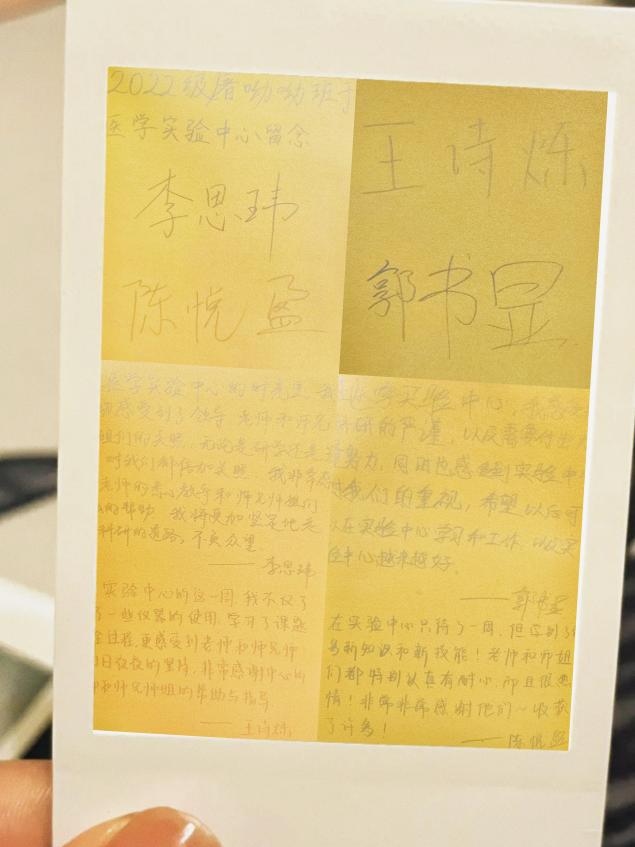 2022级屠呦呦班于
医学实验中心留念
李思玮
陈悦盈
王诗烁
郭书显
医学实验中心的时光里,我
感受到了领导、老师和师兄
姐们的关照,无论是科学还是
对我们都倍加关照。我非常感
老师的悉心教导和师兄师姐们
的帮助,我将更加坚定地走
科研的道路,不负众望。
——李思玮
实验中心的这一周,我不仅了
一些仪器的使用,学习了课题
过程,更感受到老师和师兄师
日夜夜的坚持,非常感谢中心的
和师兄师姐的帮助与指导
——王诗烁
在医学实验中心,我感受
科研的严谨,以及需要付出
努力,同时也感受到实验中
对我们的重视,希望以后可
以在实验中心学习和工作,以及实
验中心越来越好。
——郭书显
在实验中心只待了一周,但学到了
多新知识和新技能!老师和师姐
们都特别认真有耐心,而且很热
情!非常非常感谢他们~收获
了许多!
——陈悦盈